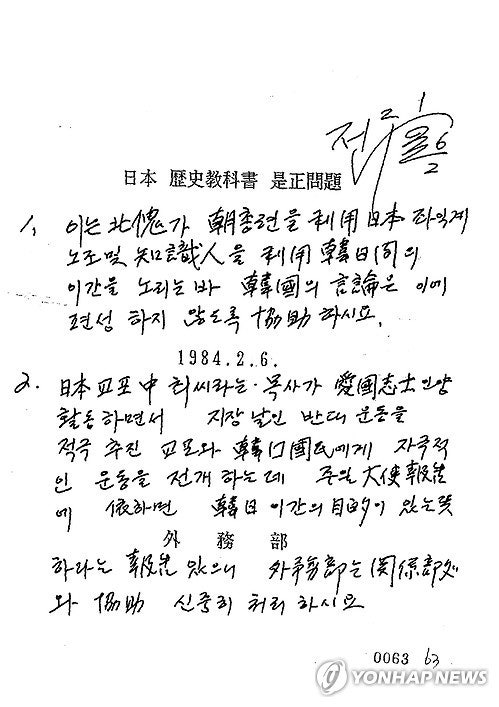 日本 歷史教科書 是正問題
1. 이는 北傀가 朝총련을 利用 日本 좌익계
노조 및 知識人을 利用 韓日間의
이간을 노리는 바 韓國의 言論은 이에
편성 하지 않도록 協助 하시요.
1984.2.6.
2. 日本 교포 中 최씨라는 목사가 愛國志士인양
활동하면서 지장 날인 반대 운동을
적극 추진 교포와 韓国国民에게 자극적
인 운동을 전개 하는데 주일 大使 報告
에 依하면 韓日 이간의 目的이 있는듯
外務部
하라는 報告 있으니 外務部는 関係部処
와 協助 신중히 처리 하시요
0063 63
YONHAP NEWS